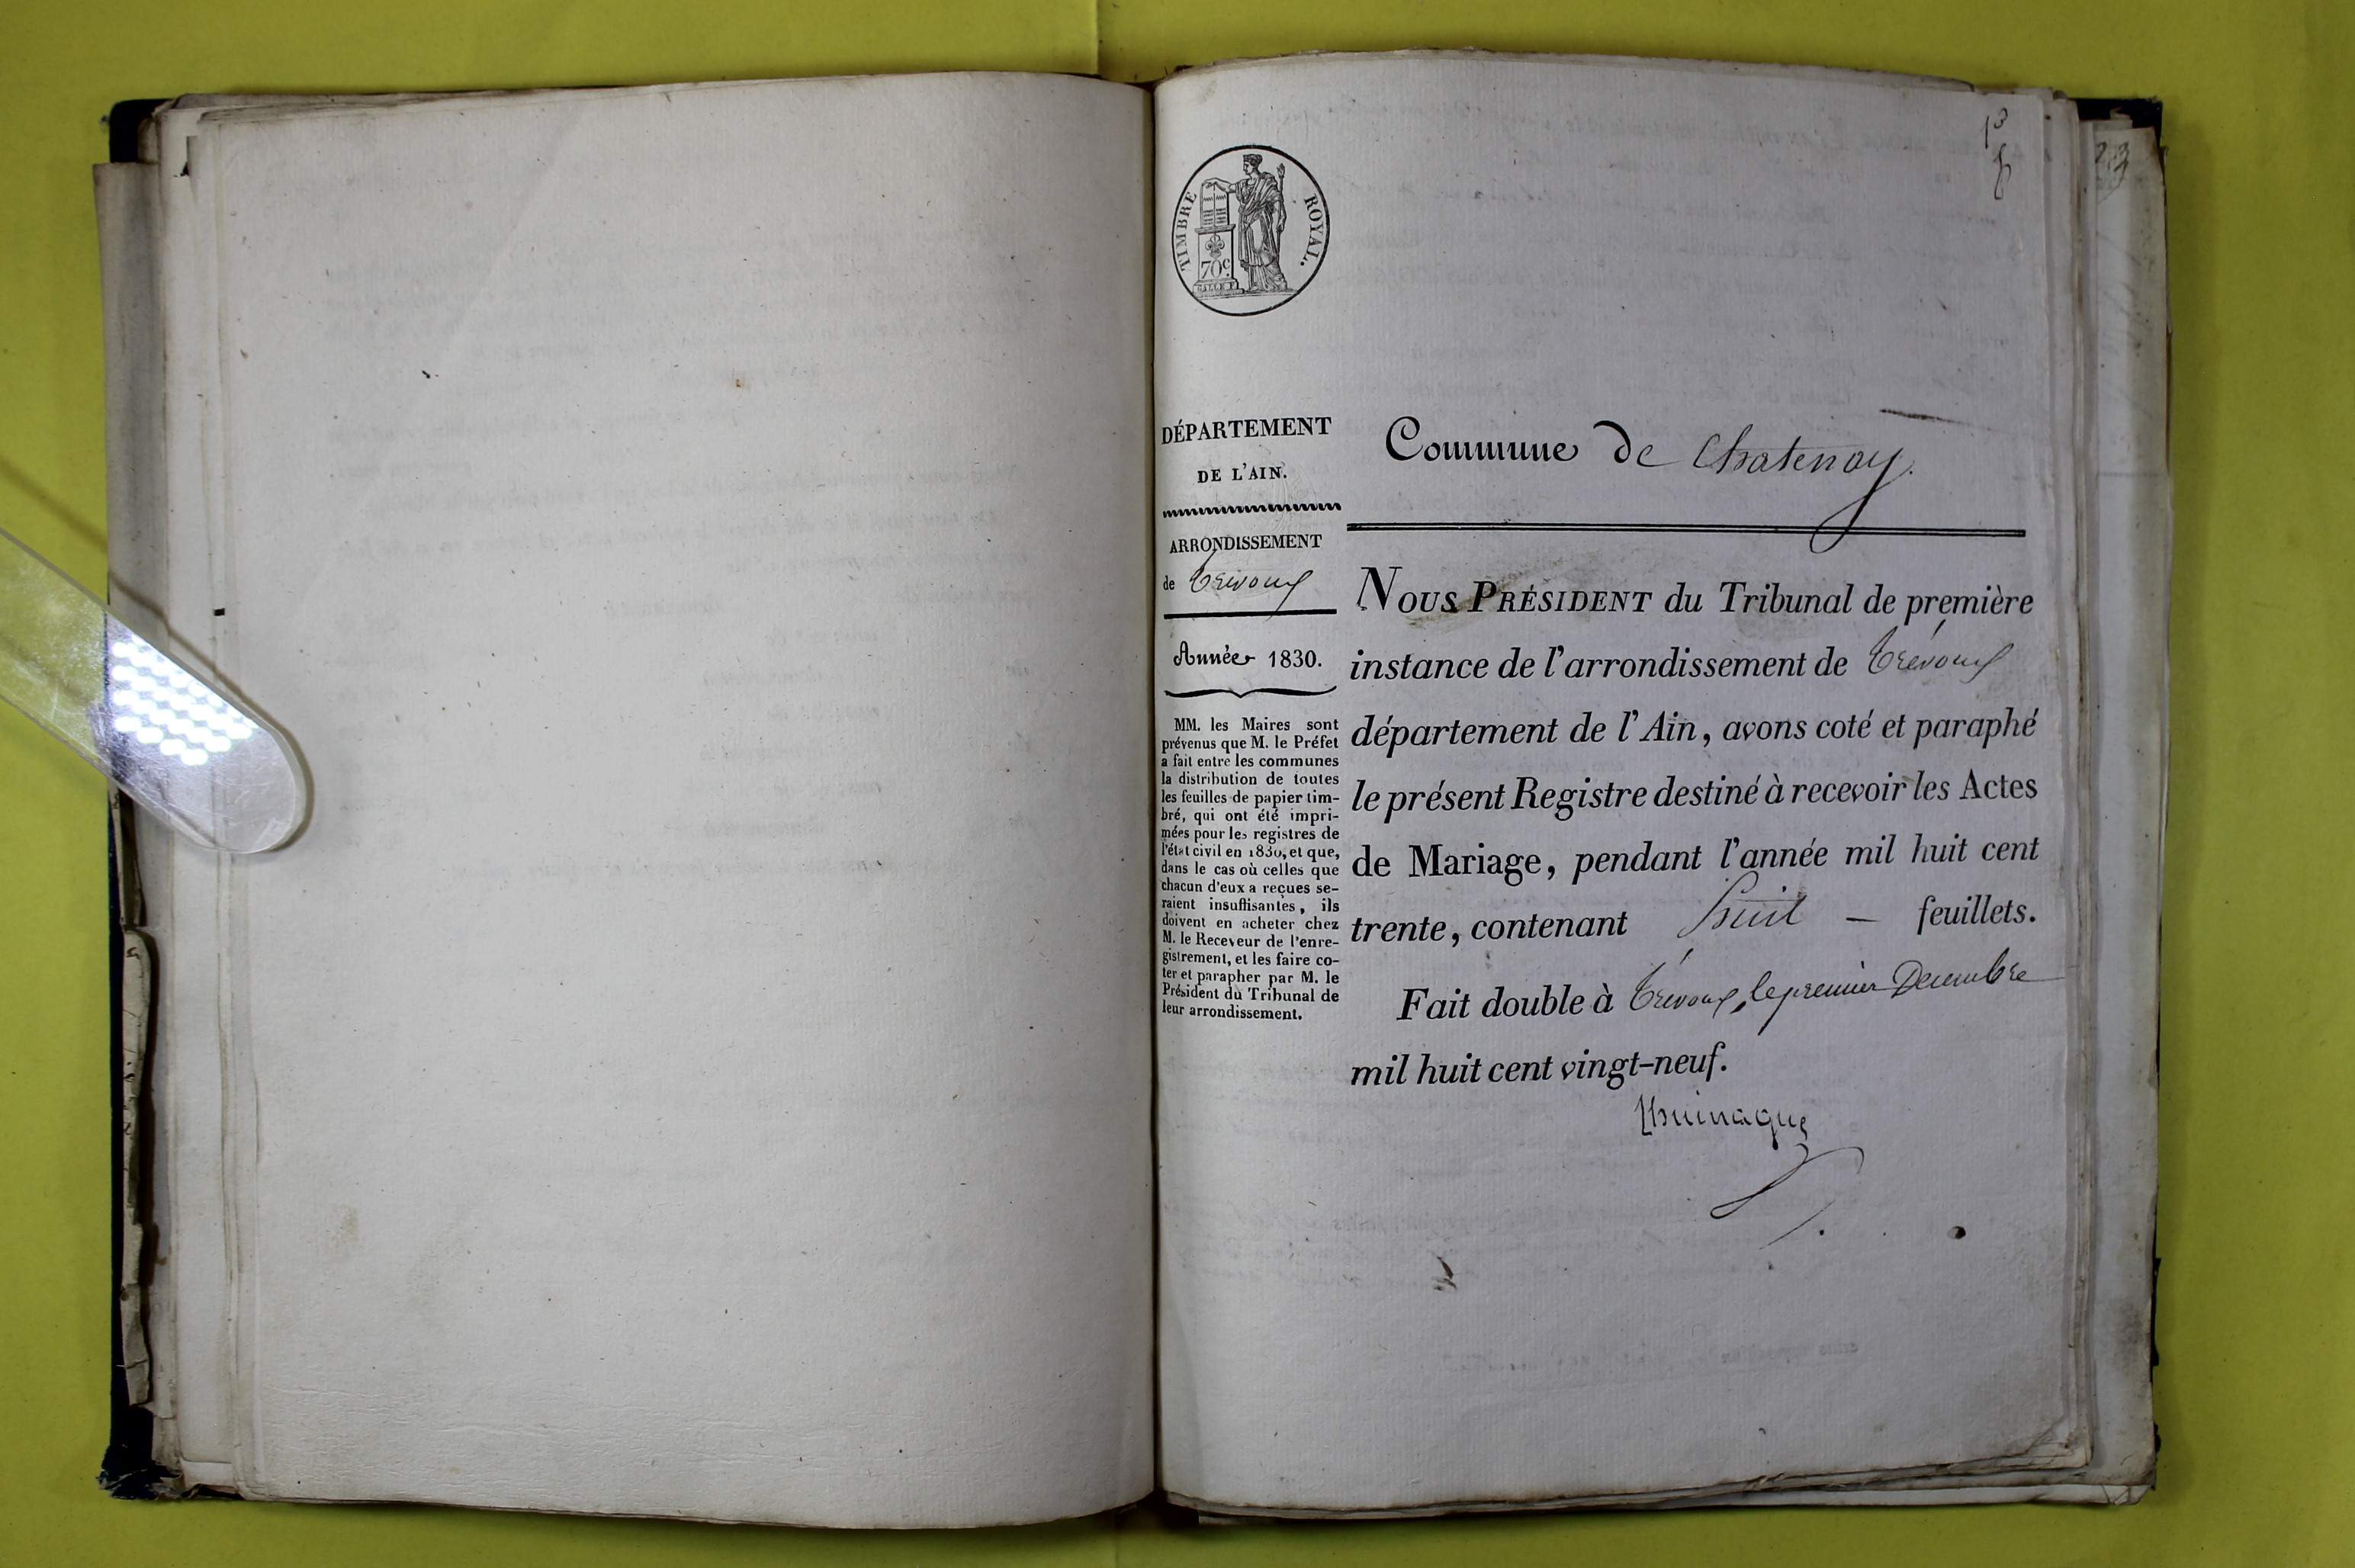 TIMBRE ROYAL.
70c.
DÉPARTEMENT
DE L'AIN.
ARRONDISSEMENT
de Trévoux
Année 1830.
MM. les Maires sont
prévenus que M. le Préfet
a fait entre les communes
la distribution de toutes
les feuilles de papier tim-
bré, qui ont été impri-
mées pour les registres de
l'état civil en 1830, et que,
dans le cas où celles que
chacun d'eux a reçues se-
raient insuffisantes, ils
doivent en acheter chez
M. le Receveur de l'enre-
gistrement, et les faire co-
ter et parapher par M. le
Président du Tribunal de
leur arrondissement.
Commune de Chatenay.
NOUS PRÉSIDENT du Tribunal de première
instance de l'arrondissement de Trévoux
département de l'Ain, avons coté et paraphé
le présent Registre destiné à recevoir les Actes
de Mariage, pendant l'année mil huit cent
trente, contenant huit — feuillets.
Fait double à Trévoux, le premier Decembre
mil huit cent vingt-neuf.